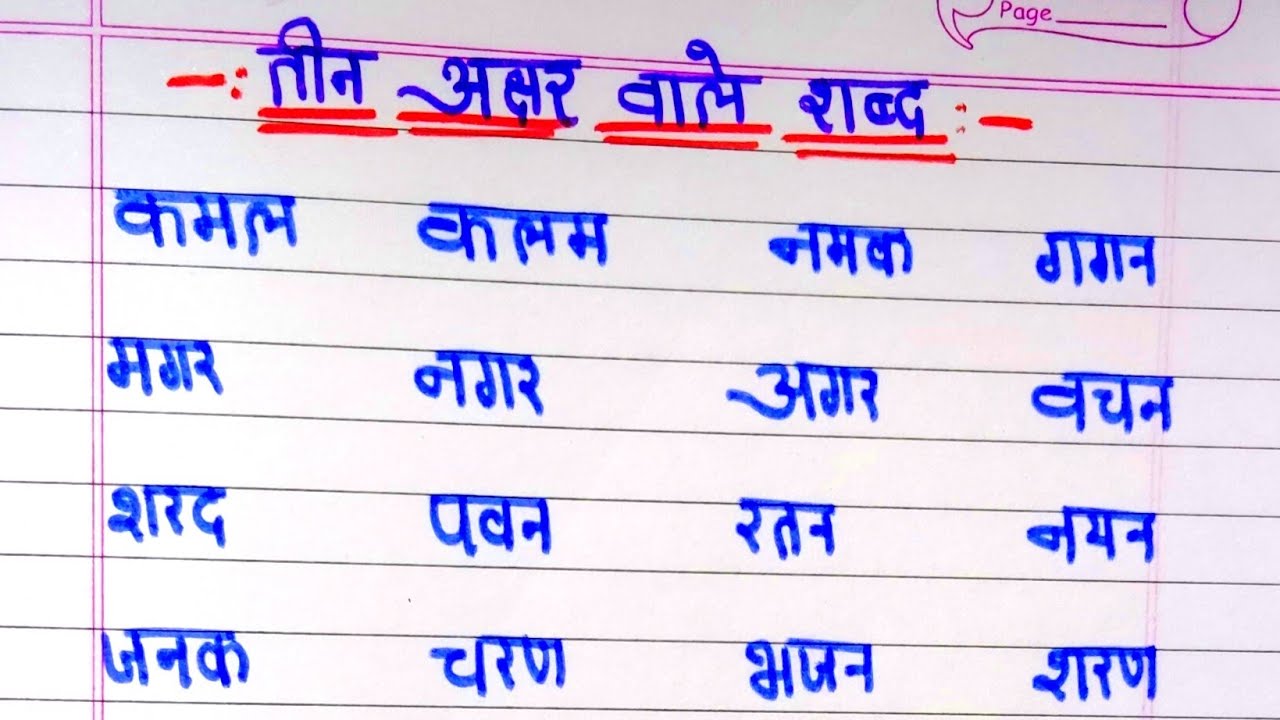 Page
-: तीन अक्षर वाले शब्द :-
कमल कलम नमक गगन
मगर नगर अगर वचन
शरद पवन रतन नयन
जनक चरण भजन शरण